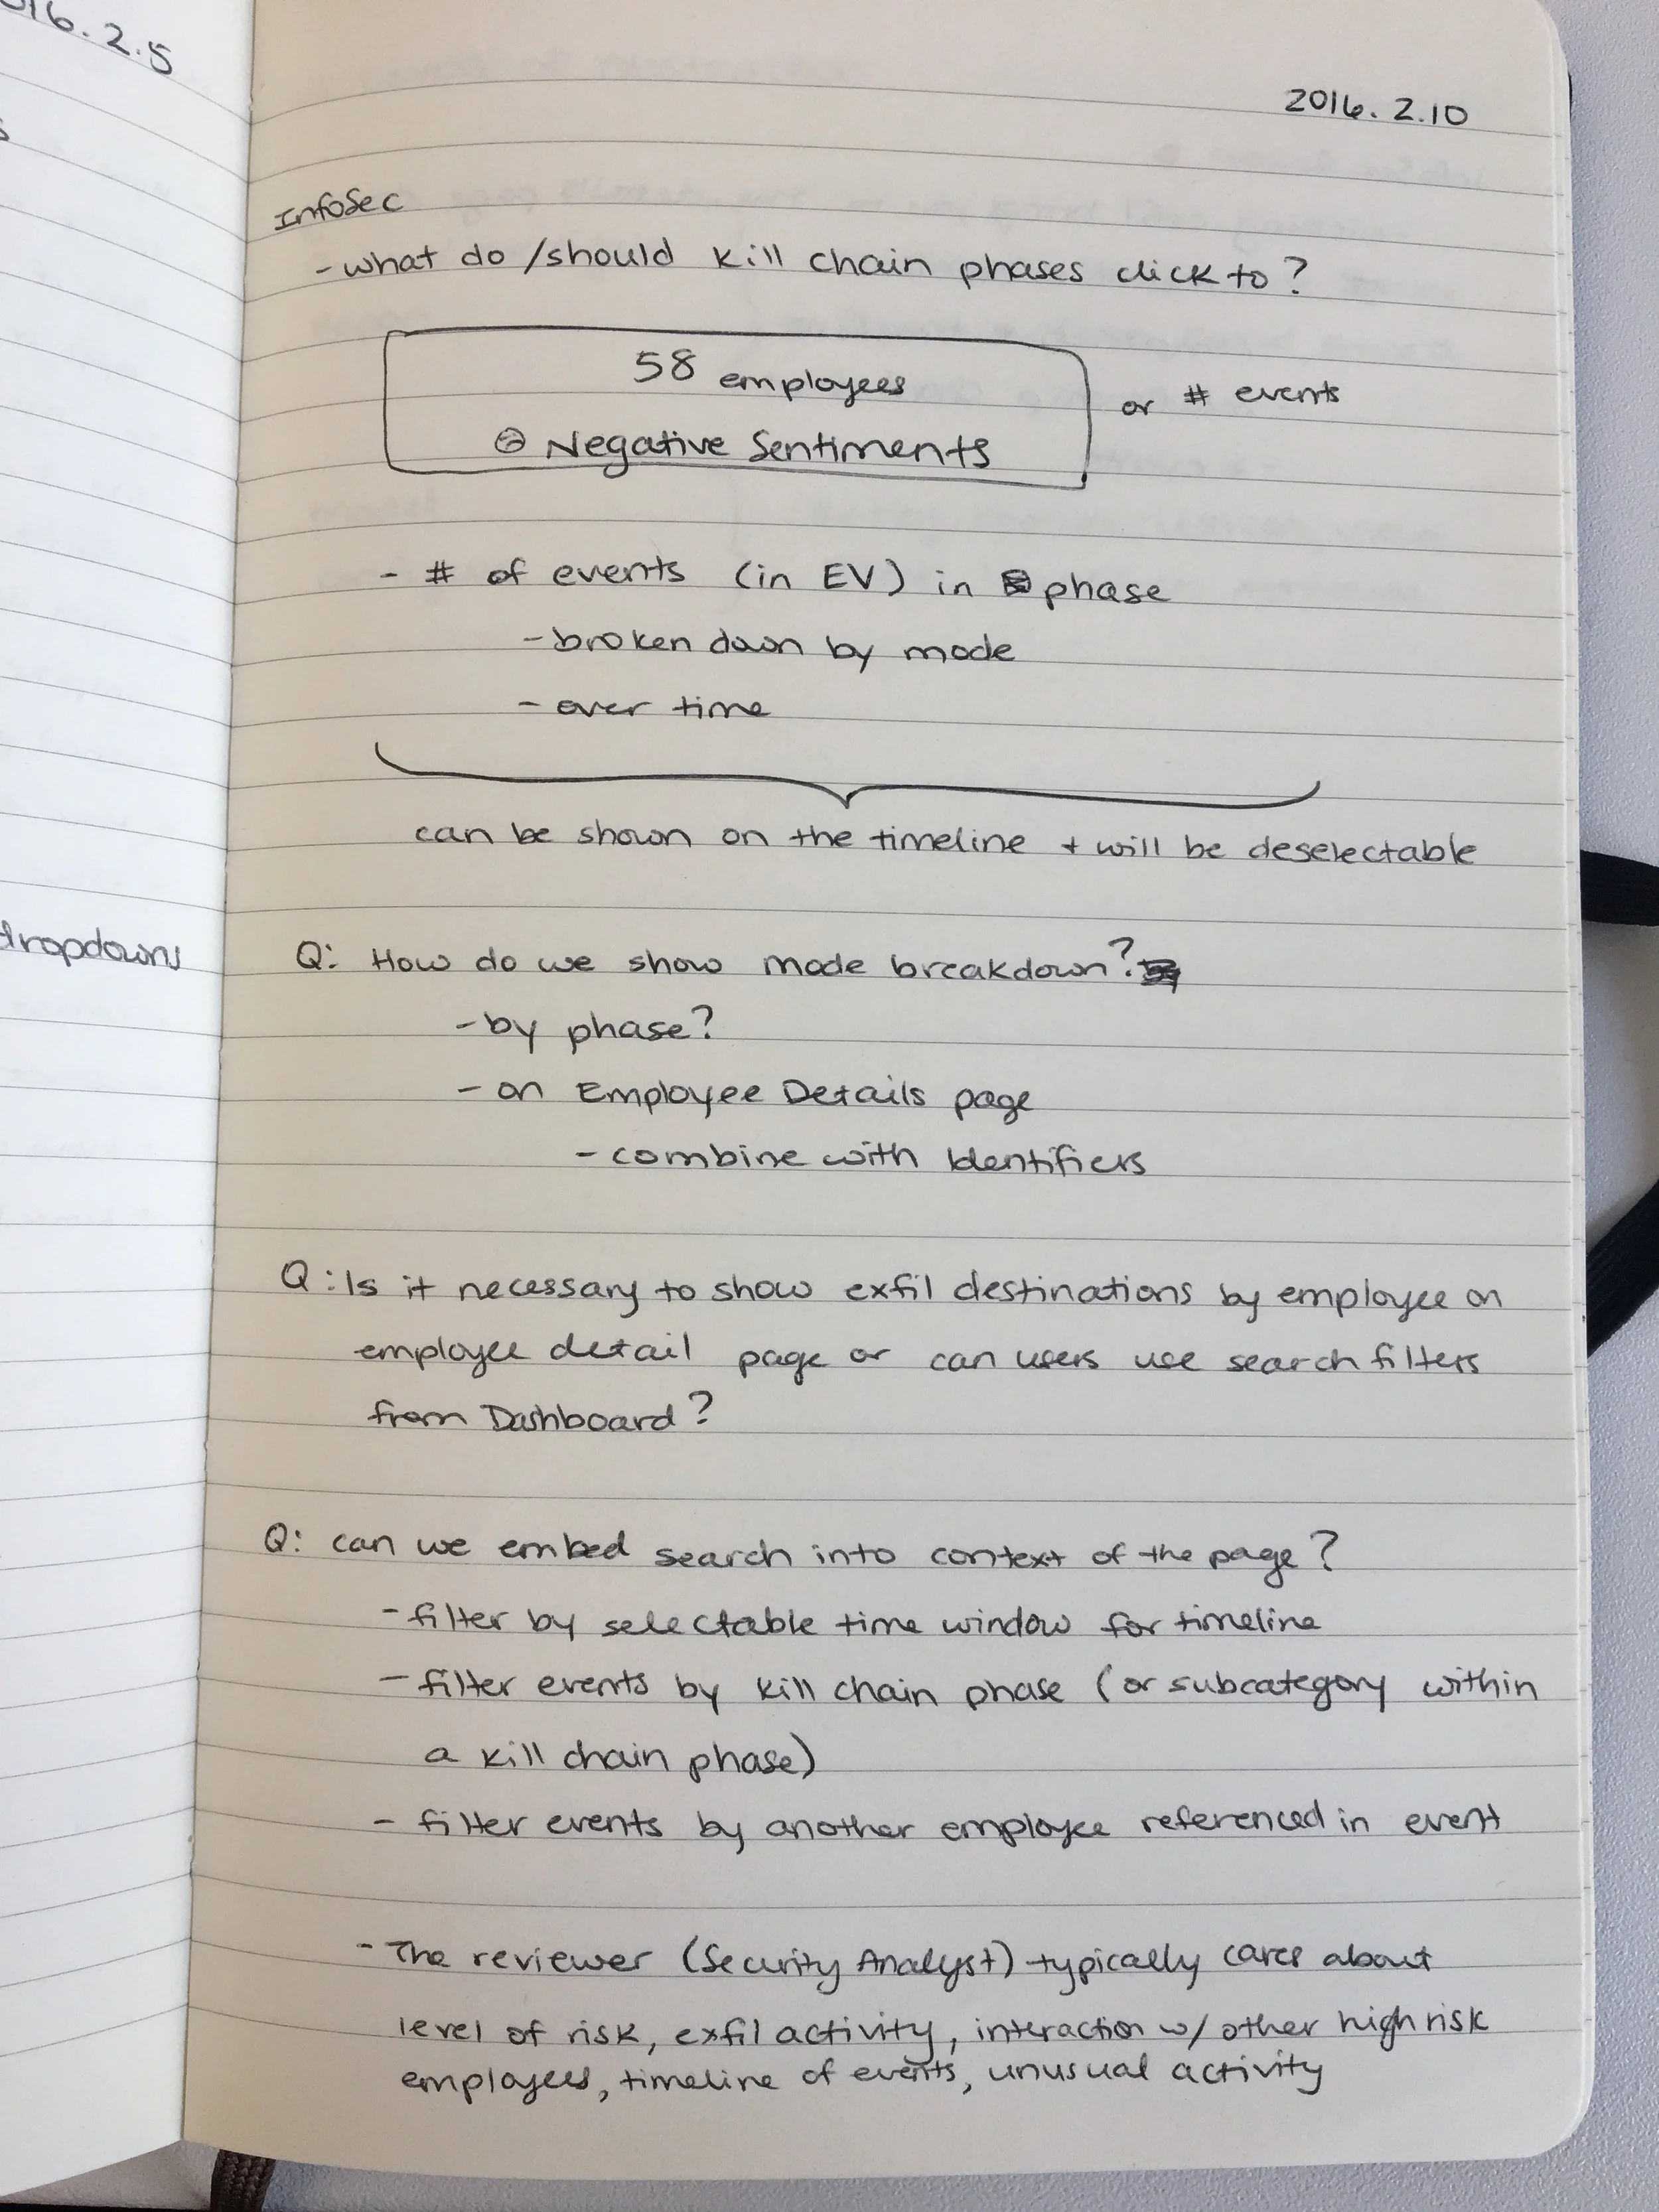 16.2.5
dropdowns
2016.2.10
InfoSec
- what do /should kill chain phases click to?
58 employees
or # events
☹ Negative Sentiments
- # of events (in EV) in phase
- broken down by mode
- over time
can be shown on the timeline + will be deselectable
Q: How do we show mode breakdown?
- by phase?
- on Employee Details page
- combine with Identifiers
Q: Is it necessary to show exfil destinations by employee on
employee detail page or can users use search filters
from Dashboard?
Q: can we embed search into context of the page?
- filter by selectable time window for timeline
- filter events by kill chain phase (or subcategory within
a kill chain phase)
- filter events by another employee referenced in event
- The reviewer (Security Analyst) typically cares about
level of risk, exfil activity, interaction w/ other high risk
employees, timeline of events, unusual activity